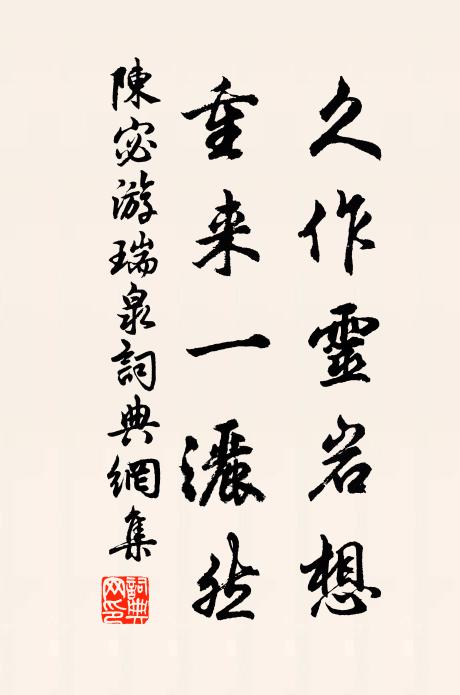 久作靈岩想
重来一灑然
陳宓游瑞泉詞典網集
詞典網印